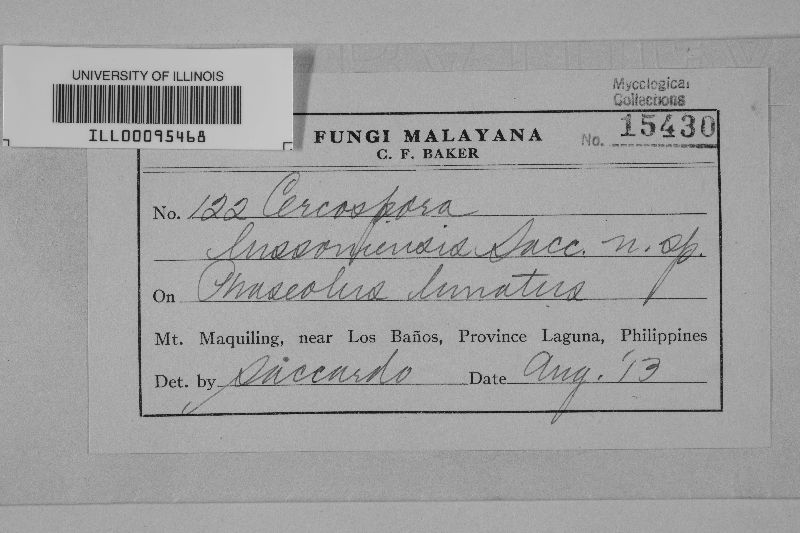 UNIVERSITY OF ILLINOIS
ILL00095468
Mycological
Collections
No. 15430
FUNGI MALAYANA
C. F. BAKER
No. 122 Cercospora
lussoniensis Sacc. n. sp.
On Phaseolus lunatus
Mt. Maquiling, near Los Baños, Province Laguna, Philippines
Det. by Saccardo Date Aug. '13